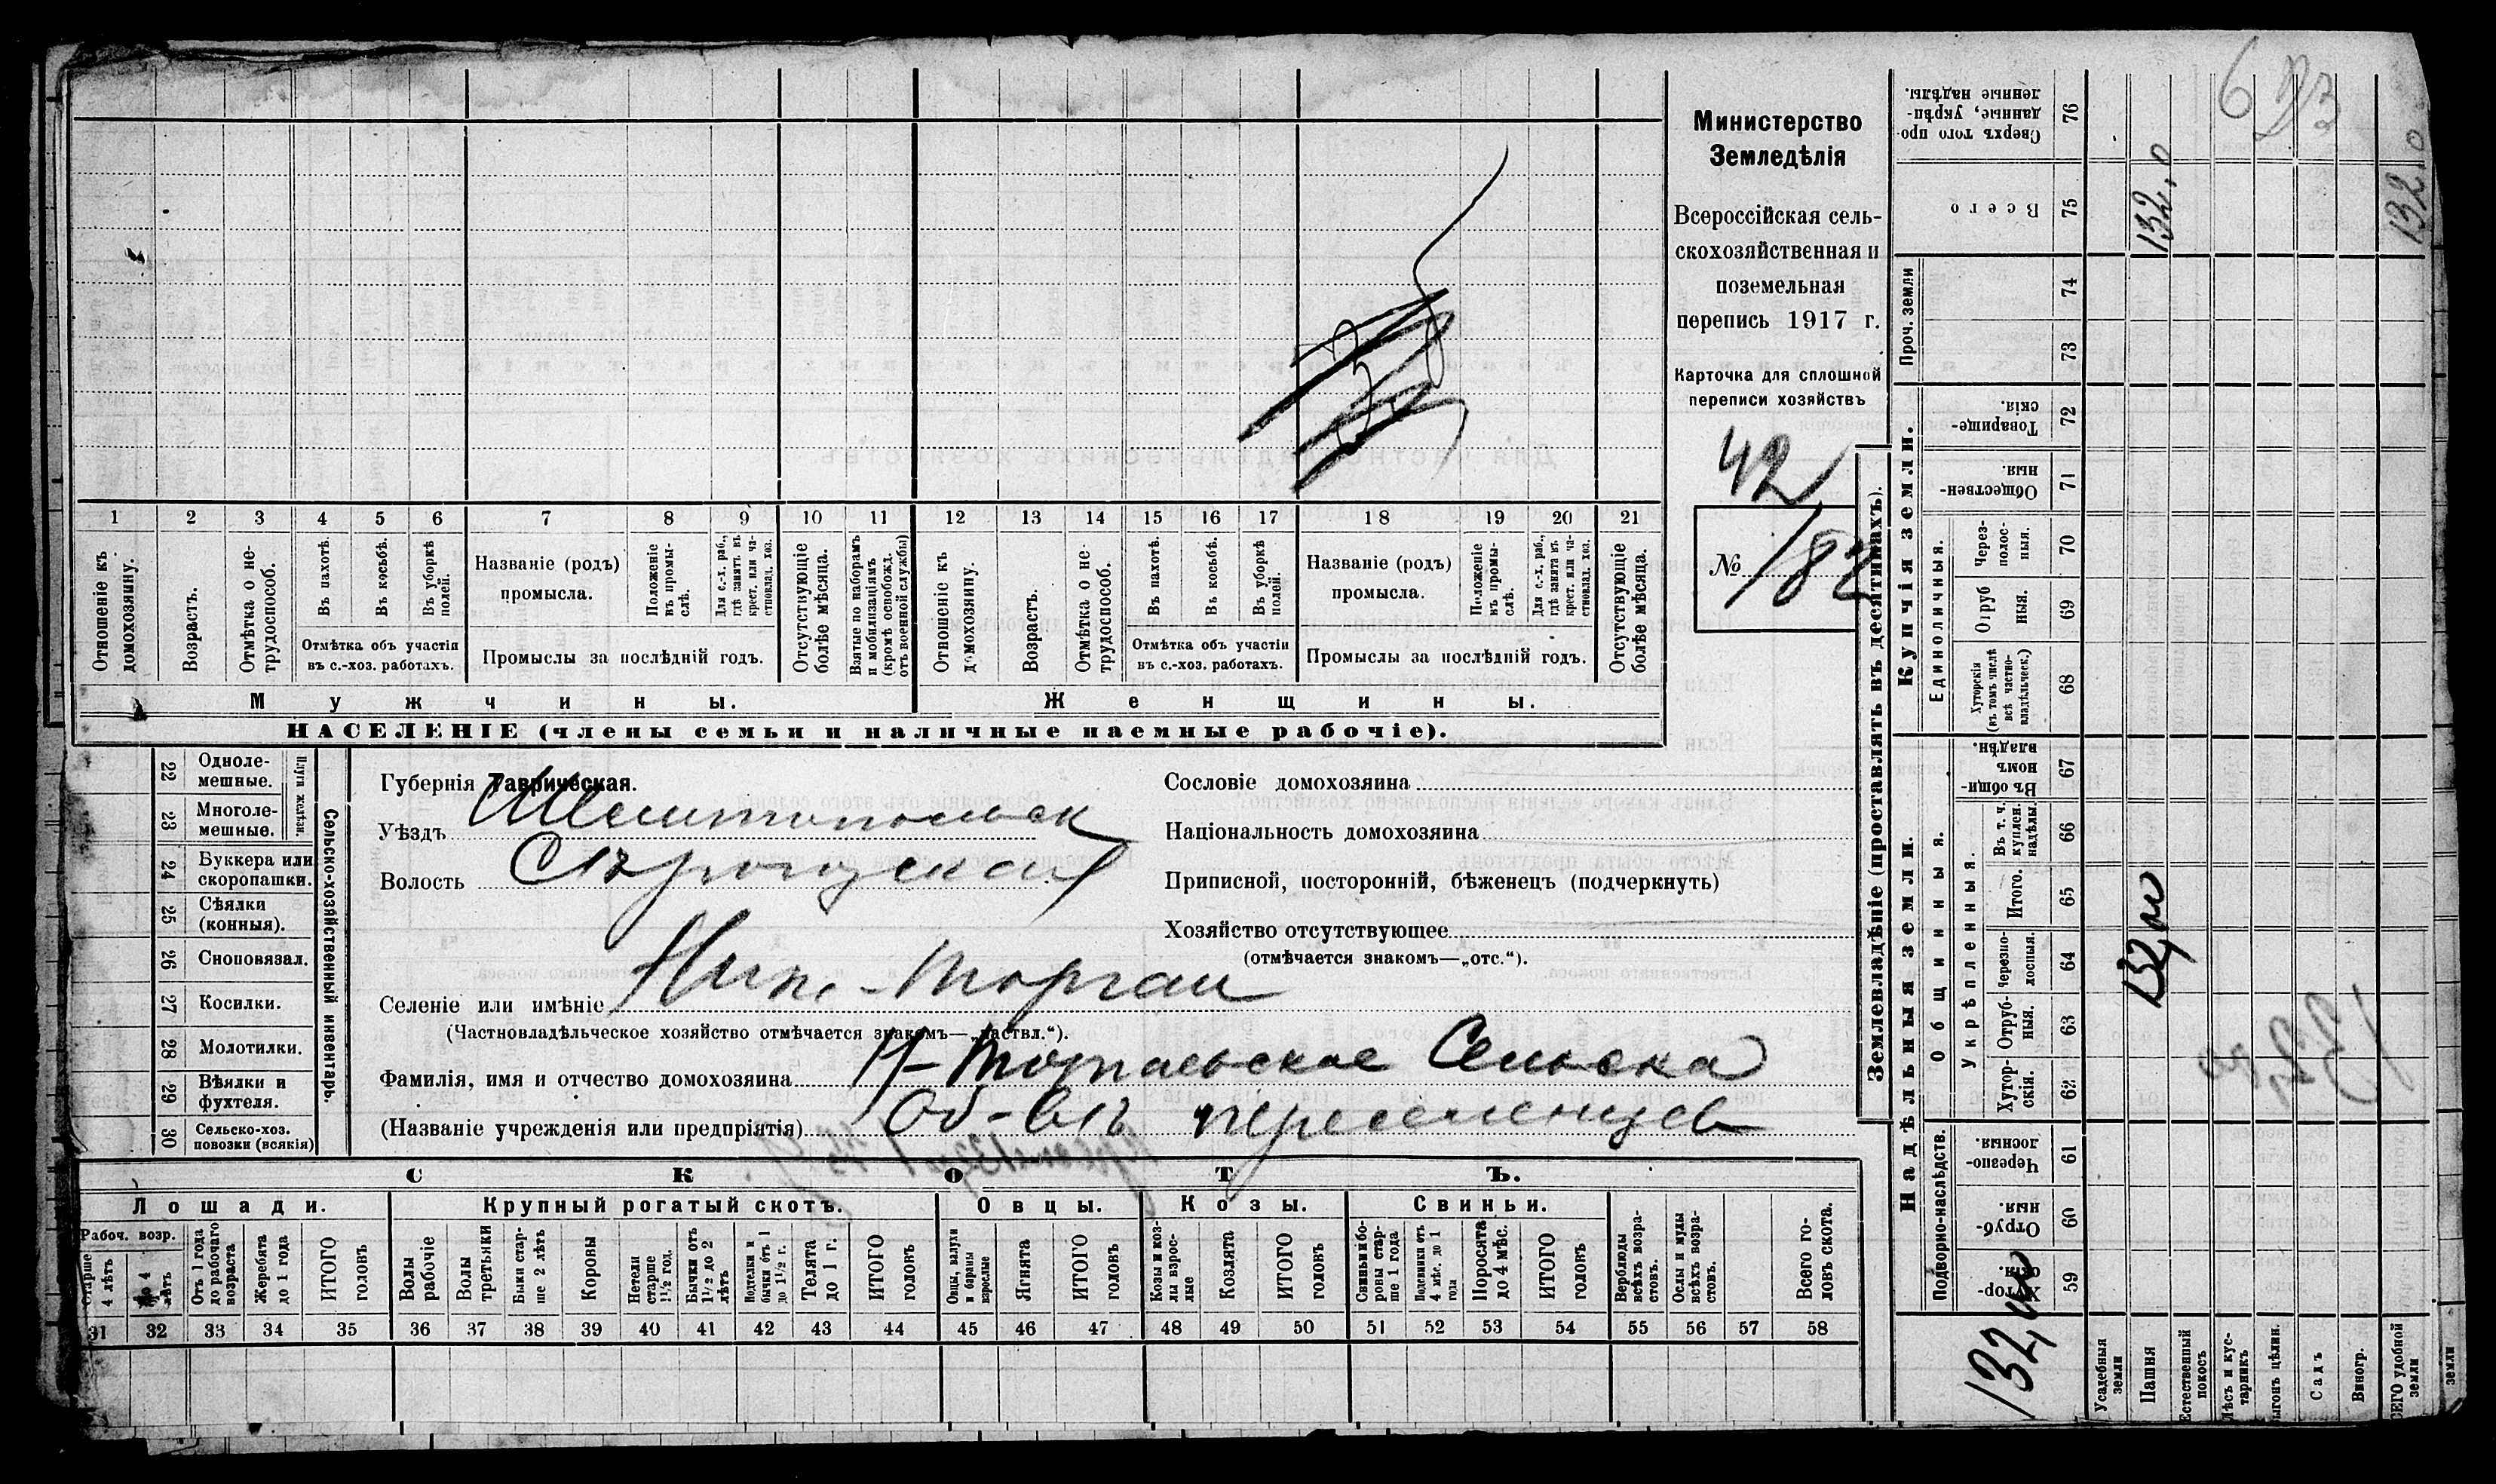 6
132.0
132.0
Министерство
Земледѣлія
Всероссійская сель-
скохозяйственная и
поземельная
перепись 1917 г.
Карточка для сплошной
переписи хозяйствъ
42
№ 182
1 2 3 4 5 6 7 8 9 10 11 12 13 14 15 16 17 18 19 20 21
Отношеніе къ домохозяину.
Возрастъ.
Отмѣтка о не-трудоспособ.
Въ пахотѣ.
Въ косьбѣ.
Въ уборкѣ полей.
Отмѣтка объ участіи
въ с.-хоз. работахъ.
Названіе (родъ)
промысла.
Положеніе въ промы-слѣ.
Для с.-х. раб., гдѣ занятъ въ крест. или ча-стновлад. хоз.
Промыслы за послѣдній годъ.
Отсутствующіе болѣе мѣсяца.
Взятые по наборамъ и мобилизаціямъ (кромѣ освобожд. отъ военной службы)
Отношеніе къ домохозяину.
Возрастъ.
Отмѣтка о не-трудоспособ.
Въ пахотѣ.
Въ косьбѣ.
Въ уборкѣ полей.
Отмѣтка объ участіи
въ с.-хоз. работахъ.
Названіе (родъ)
промысла.
Положеніе въ промы-слѣ.
Для с.-х. раб., гдѣ занята въ крест. или ча-стновлад. хоз.
Промыслы за послѣдній годъ.
Отсутствующіе болѣе мѣсяца.
Мужчины.
Женщины.
НАСЕЛЕНІЕ (члены семьи и наличные наемные рабочіе).
22 Однолемешные.
23 Многолемешные.
Плуги желѣзн.
24 Буккера или скоропашки.
25 Сѣялки (конныя).
26 Сноповязал.
27 Косилки.
28 Молотилки.
29 Вѣялки и фухтеля.
30 Сельско-хоз. повозки (всякія)
Сельско-хозяйственный инвентарь.
Губернія Таврическая.
Уѣздъ Мелитопольск
Волость
Селеніе или имѣніе Ниж.-Торгаи
(Частновладѣльческое хозяйство отмѣчается знакомъ—„частвл.“).
Фамилія, имя и отчество домохозяина Н-Торгаевское Сельска
(Названіе учрежденія или предпріятія) Об-въ переселенцев
Сословіе домохозяина
Національность домохозяина
Приписной, посторонній, бѣженецъ (подчеркнуть)
Хозяйство отсутствующее
(отмѣчается знакомъ—„отс.“).
СКОТЪ.
Лошади. Крупный рогатый скотъ. Овцы. Козы. Свиньи.
Рабоч. возр.
Старше 4 лѣтъ
До 4 лѣтъ
Отъ 1 года до рабочаго возраста
Жеребята до 1 года
ИТОГО головъ
Волы рабочіе
Волы третьяки
Быки стар-ше 2 лѣтъ
Коровы
Нетели старше 1½ год.
Бычки отъ 1½ до 2 лѣтъ
Подтелки и бычки отъ 1 до 1½ г.
Телята до 1 г.
ИТОГО головъ
Овцы, валухи и бараны взрослые
Ягнята
ИТОГО головъ
Козы и коз-лы взрос-лые
Козлята
ИТОГО головъ
Свиньи и бо-ровы стар-ше 1 года
Подсвинки отъ 4 мѣс. до 1 года
Поросята до 4 мѣс.
ИТОГО головъ
Верблюды всѣхъ возра-стовъ.
Ослы и мулы всѣхъ возра-стовъ.
Всего го-ловъ скота.
31 32 33 34 35 36 37 38 39 40 41 42 43 44 45 46 47 48 49 50 51 52 53 54 55 56 57 58
Землевладѣніе (проставлять въ десятинахъ).
Купчія земли.
Надѣльныя земли.
Сверхъ того про-данные, укрѣп-ленные надѣлы. 76
Всего 75
Проч. земли 74 73
Товарище-скія. 72
Обществен-ныя. 71
Единоличныя.
Через-полос-ныя. 70
Отруб-ныя. 69
Хуторскія (въ томъ числѣ всѣ частно-владѣльческ.) 68
Въ общин-номъ владѣн. 67
Общинныя.
Укрѣпленныя.
Въ т. ч. куплен. надѣлы. 66
Итого. 65
Черезпо-лосныя. 64
Отруб-ныя. 63
Хутор-скія. 62
Подворно-наслѣдств.
Черезпо-лосныя. 61
Отруб-ныя. 60
Хутор-скія. 59
Усадебныя земли
Пашня
Естественный покосъ
Лѣсъ и кус-тарникъ
Выгонъ цѣлин.
Садъ
Виногр.
ВСЕГО удобной земли
земли